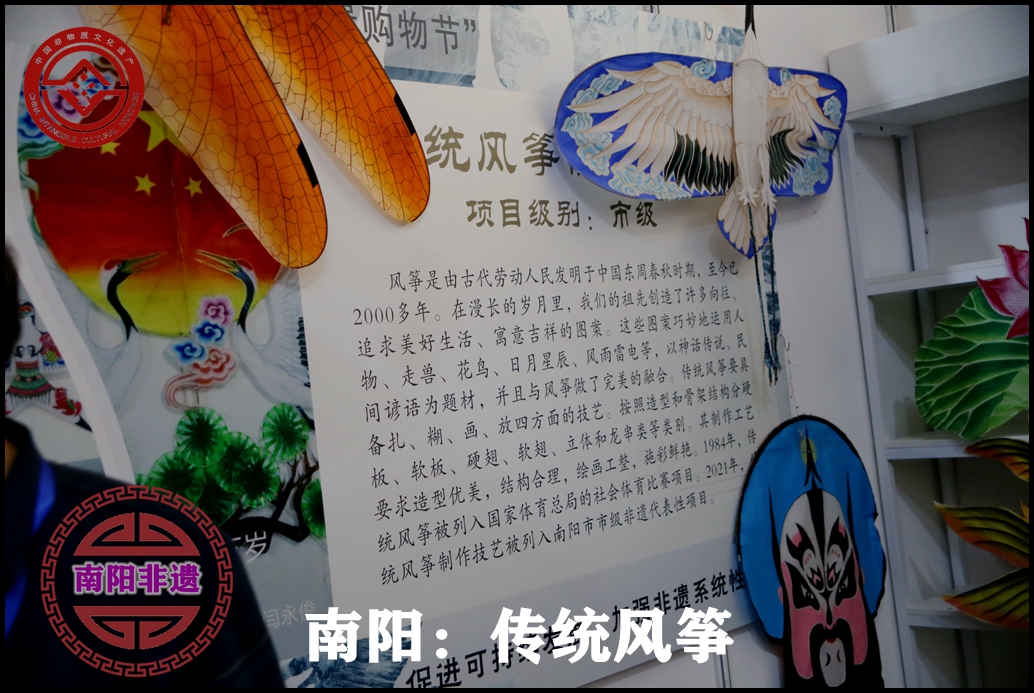 购物节”
中国非物质文化遗产
CHINA INTANGIBLE CULTURAL HERITAGE
统风筝
项目级别：市级
风筝是由古代劳动人民发明于中国东周春秋时期，至今已
2000多年。在漫长的岁月里，我们的祖先创造了许多向往、
追求美好生活、寓意吉祥的图案。这些图案巧妙地运用人
物、走兽、花鸟、日月星辰、风雨雷电等，以神话传说、民
间谚语为题材，并且与风筝做了完美的融合。传统风筝要具
备扎、糊、画、放四方面的技艺。按照造型和骨架结构分硬
板、软板、硬翅、软翅、立体和龙串类等类别。其制作工艺
要求造型优美，结构合理，绘画工整，施彩鲜艳。1984年，传
统风筝被列入国家体育总局的社会体育比赛项目。2021年，
统风筝制作技艺被列入南阳市市级非遗代表性项目。
岁
闫永俊
南阳非遗
促进可持续 加强非遗系统性
南阳：传统风筝